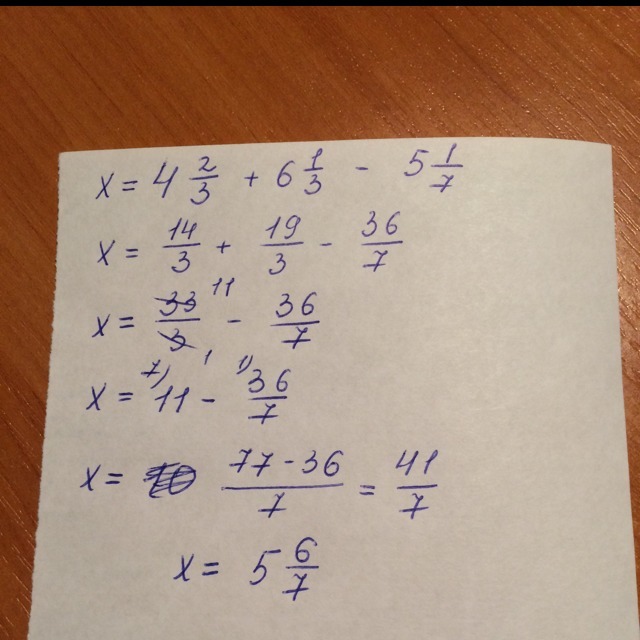 x = 4 2/3 + 6 1/3 - 5 1/7
x = 14/3 + 19/3 - 36/7
x = 33/3 11/1 - 36/7
x = 7) 11 - 1) 36/7
x = 77-36/7 = 41/7
x = 5 6/7